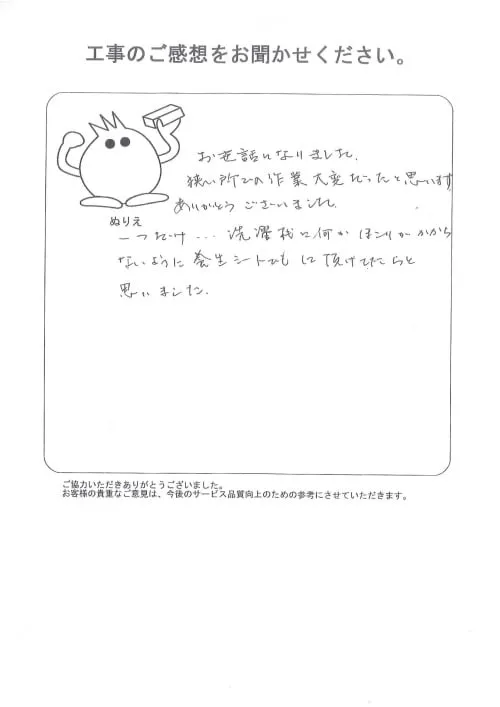 工事のご感想をお聞かせください。
お世話になりました。
狭い所での作業大変だったと思います
ありがとうございました。
ぬりえ
一つだけ...洗濯機に何かほこりがかから
ないように養生シートでもして頂けてたらと
思いました。
ご協力いただきありがとうございました。
お客様の貴重なご意見は、今後のサービス品質向上のための参考にさせていただきます。